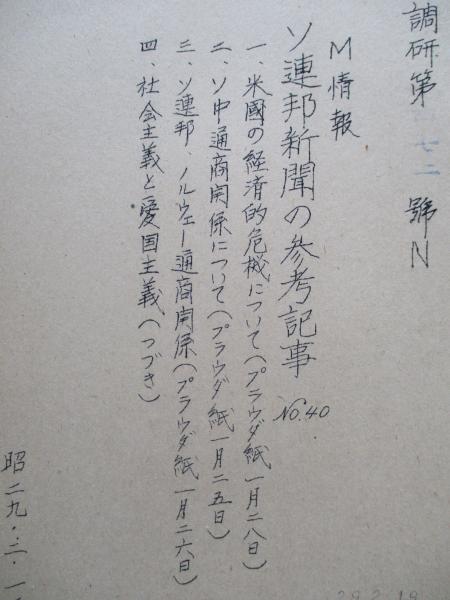 調研第 七二 號N
M情報
ソ連邦新聞の参考記事 No.40
一、米國の経済的危機について(プラウダ紙一月二八日)
二、ソ中通商関係について(プラウダ紙一月二五日)
三、ソ連邦、ノルウェー通商関係(プラウダ紙一月二六日)
四、社会主義と愛国主義(つづき)
昭二九・三・一
29.2.19